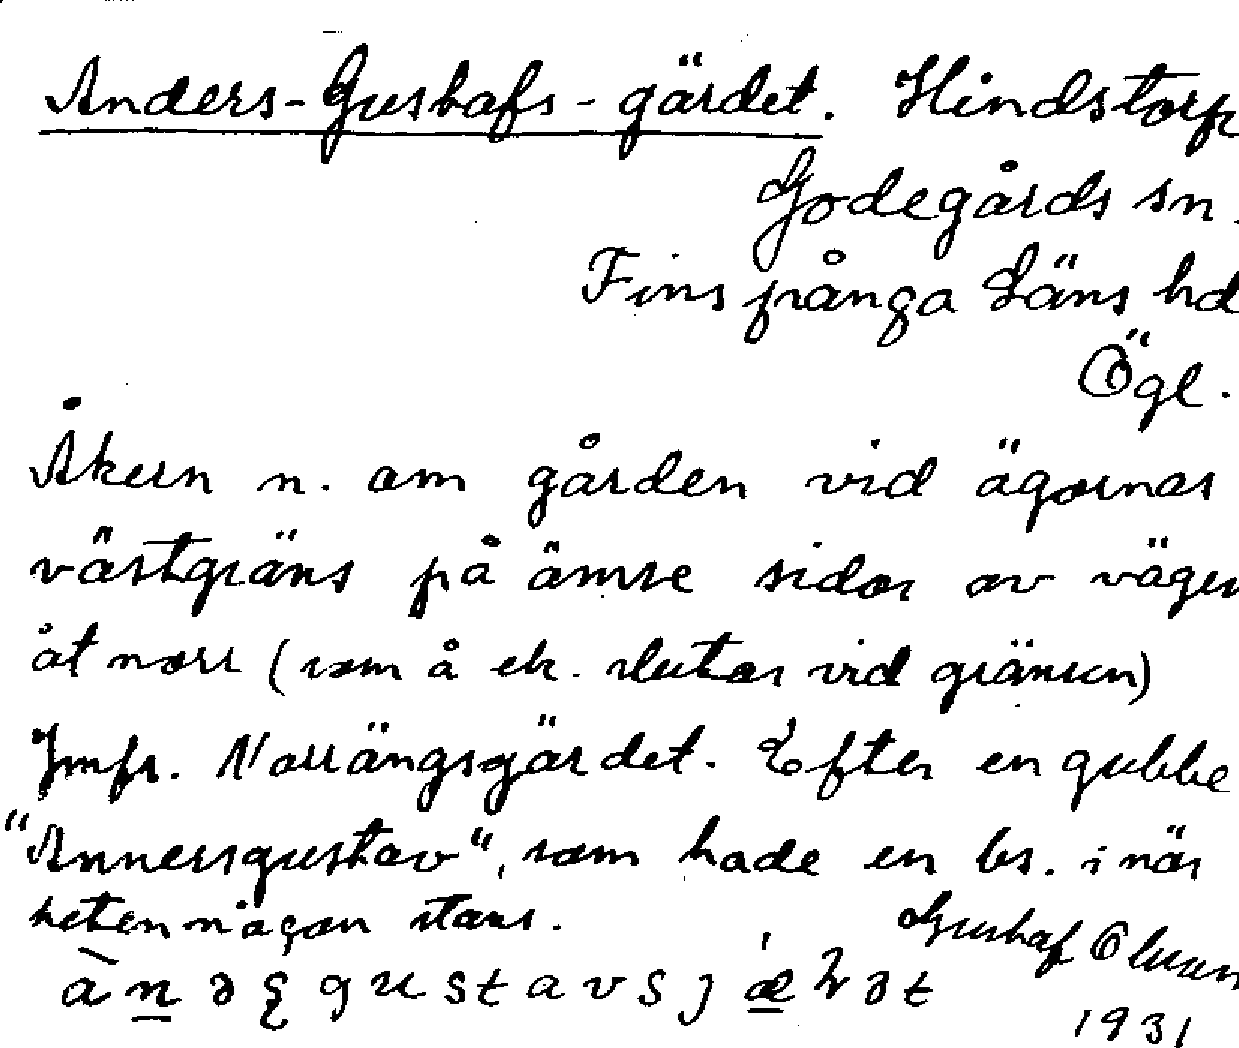 Anders-Gustafs-gärdet. Hindstorp
Godegårds sn.
Finspånga Läns hd
Ögl.
Åkern n. om gården vid ägornas
västgräns på ömse sidor av vägen
åt norr (som å ek. slutar vid gränsen)
Jmfr. Norrängsgärdet. Efter en gubbe
"Annersgustav", som hade en bs. i när
heten någon stans.
Gustaf Olsson
1931